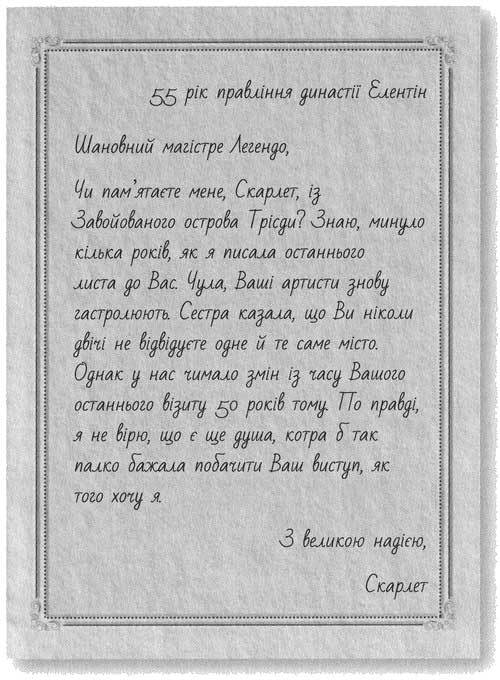 55 рік правління династії Елентін
Шановний магістре Легендо,
Чи пам'ятаєте мене, Скарлет, із
Завойованого острова Трісди? Знаю, минуло
кілька років, як я писала останнього
листа до Вас. Чула, Ваші артисти знову
гастролюють. Сестра казала, що Ви ніколи
двічі не відвідуєте одне й те саме місто.
Однак у нас чимало змін із часу Вашого
останнього візиту 50 років тому. По правді,
я не вірю, що є ще душа, котра б так
палко бажала побачити Ваш виступ, як
того хочу я.
З великою надією,
Скарлет